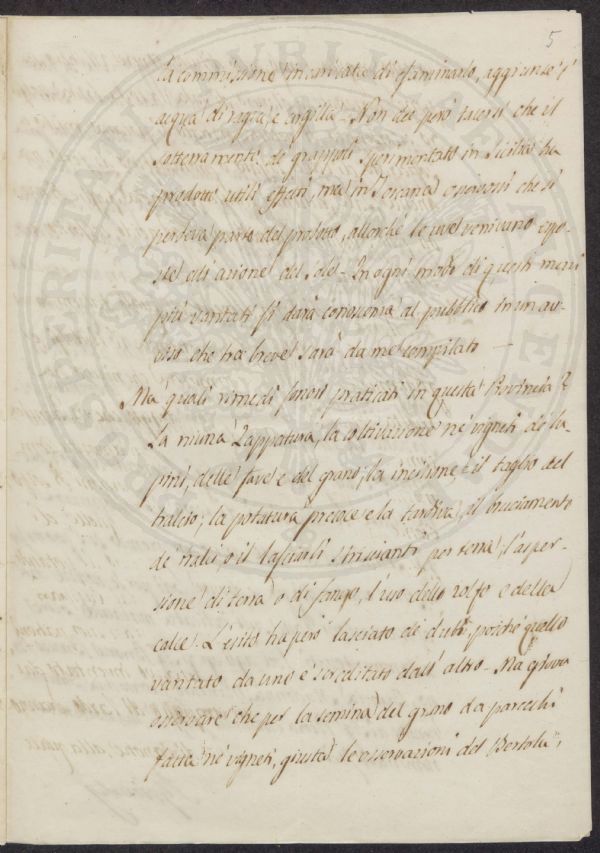 5
la commissione incaricata di esaminarlo, aggiunse l'
acqua di ragia, e argilla - Non dee però tacersi che il
sotterramento de' grappoli sperimentato in Sicilia ha
prodotto utili effetti, ma in Toscana osservossi che si
perdeva parte del prodotto, allorchè le uve venivano espo-
ste all'azione del sole - In ogni modo di questi mezzi
più vantati si darà conoscenza al pubblico in un av-
viso che tra breve sarà da me compilato -
Ma quali rimedi furon praticati in questa Provincia?
La niuna zappatura, la coltivazione nè vigneti de' lu-
pini, delle fave e del grano; la incisione, e il taglio del
tralcio; la potatura precoce e la tardiva; il bruciamento
de' tralci, o il lasciarli striscianti per terra; l'asper-
sione di terra o di fango, l'uso dello zolfo e della
calce. L'esito ha però lasciato de' dubbi, poichè quello
vantato da uno è screditato dall'altro - Ma giova
osservare che per la semina del grano da parecchi
fatta nè vigneti, giusta le osservazioni del Bertola,